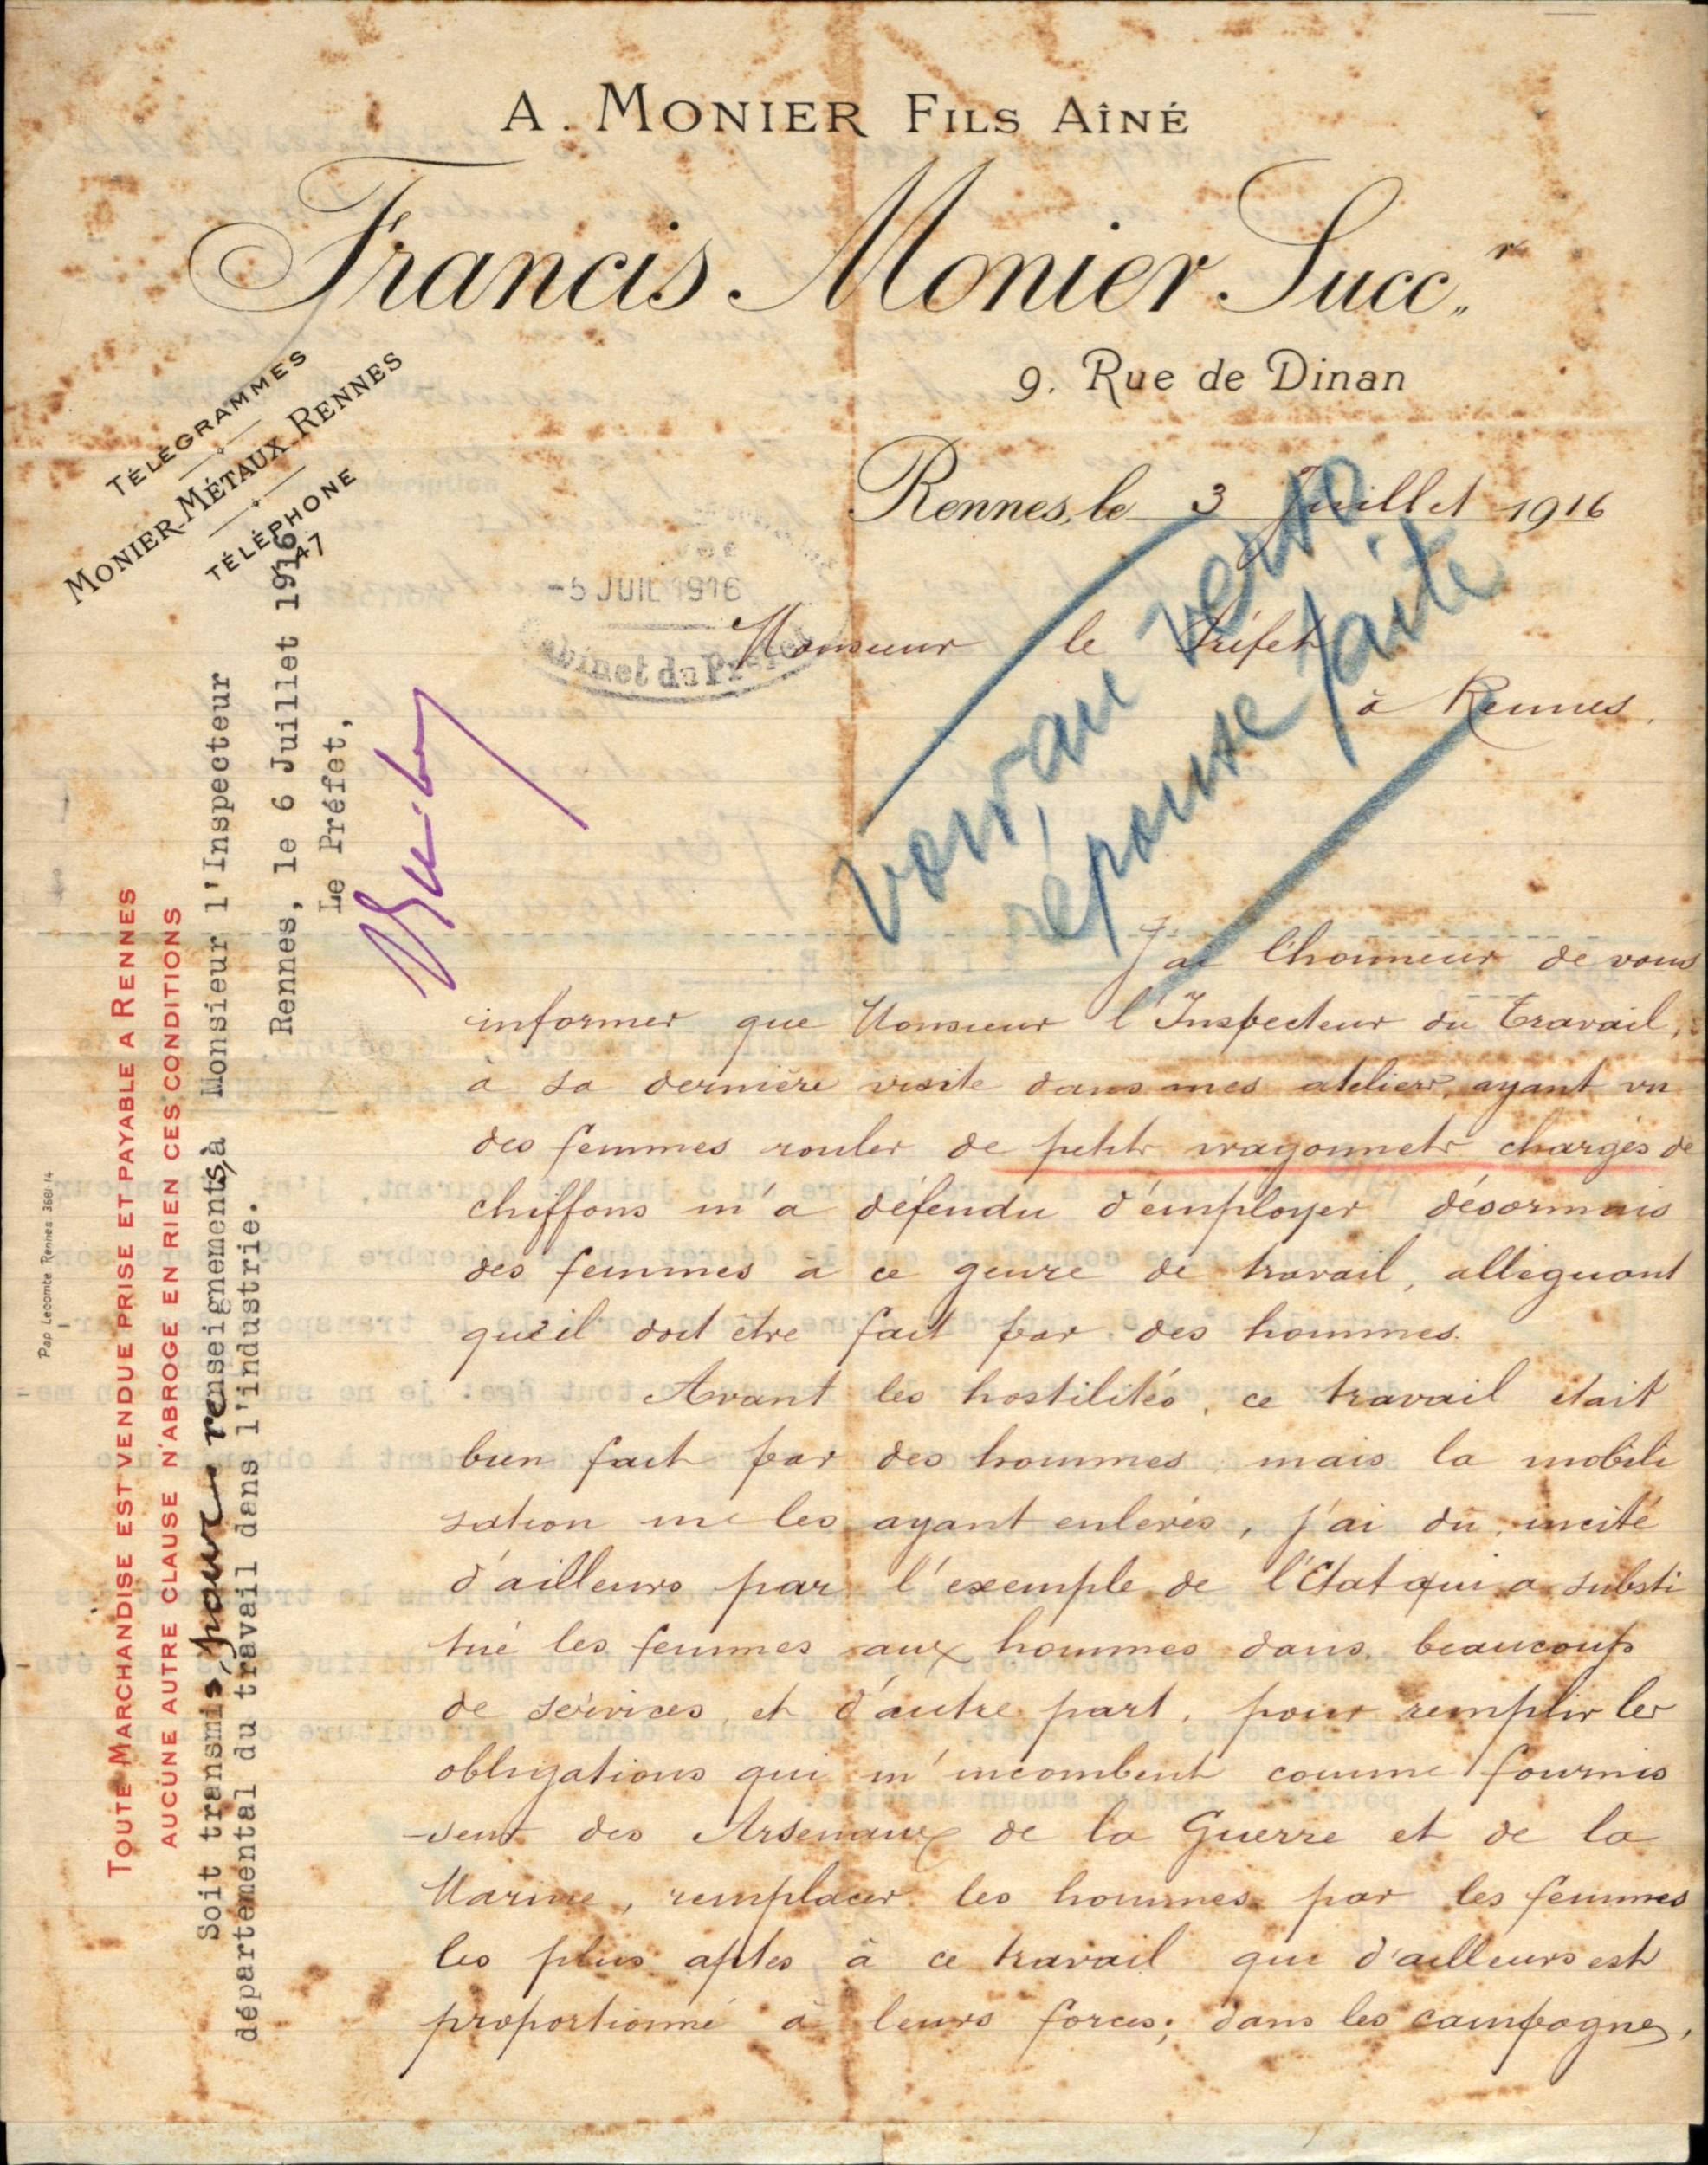 A. MONIER FILS AÎNÉ
Francis Monier Succ.r
9. Rue de Dinan
TÉLÉGRAMMES
MONIER-MÉTAUX RENNES
TÉLÉPHONE
1,47
Rennes, le 3 Juillet 1916
-5 JUIL 1916
Cabinet du Préfet
Monsieur le Préfet
à Rennes.
voir au verso
réponse faite
J'ai l'honneur de vous
informer que Monsieur l'Inspecteur du Travail,
a sa dernière visite dans mes ateliers, ayant vu
des femmes rouler de petits wagonnets chargés de
chiffons m'a défendu d'employer désormais
des femmes a ce genre de travail, alléguant
qu'il doit être fait par des hommes.
Avant les hostilités, ce travail était
bien fait par des hommes mais la mobili
sation me les ayant enlevés, j'ai dû, incité
d'ailleurs par l'exemple de l'Etat qui a substi
tué les femmes aux hommes dans beaucoup
de services et d'autre part, pour remplir les
obligations qui m'incombent comme fournis
-seur des Arsenaux de la Guerre et de la
Marine, remplacer les hommes par les femmes
les plus aptes à ce travail qui d'ailleurs est
proportionné à leurs forces; dans les campagnes,
Soit transmis, pour renseignements, à Monsieur l'Inspecteur
départemental du travail dans l'industrie.
Rennes, le 6 Juillet 1916
Le Préfet,
TOUTE MARCHANDISE EST VENDUE PRISE ET PAYABLE A RENNES
AUCUNE AUTRE CLAUSE N'ABROGE EN RIEN CES CONDITIONS
Pap Lecomte Rennes 3661-14